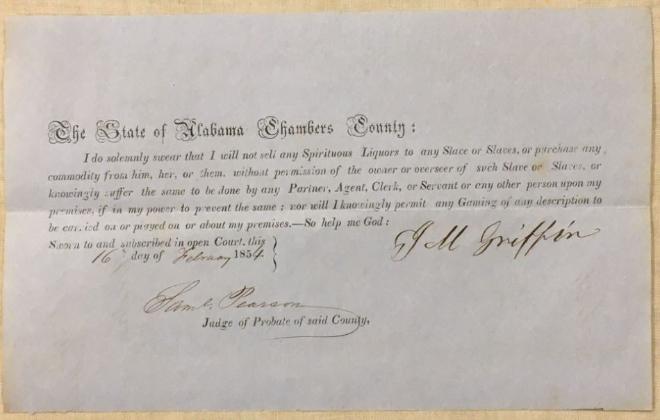 The State of Alabama Chambers County:
I do solemnly swear that I will not sell any Spirituous Liquors to any Slave or Slaves, or purchase any
commodity from him, her, or them, without permission of the owner or overseer of such Slave or Slaves, or
knowingly suffer the same to be done by any Partner, Agent, Clerk, or Servant or any other person upon my
premises, if in my power to prevent the same; nor will I knowingly permit any Gaming of any description to
be carried on or played on or about my premises.—So help me God:
Sworn to and subscribed in open Court, this
16 day of February 1854.
J M Griffin
Saml. Pearson
Judge of Probate of said County.